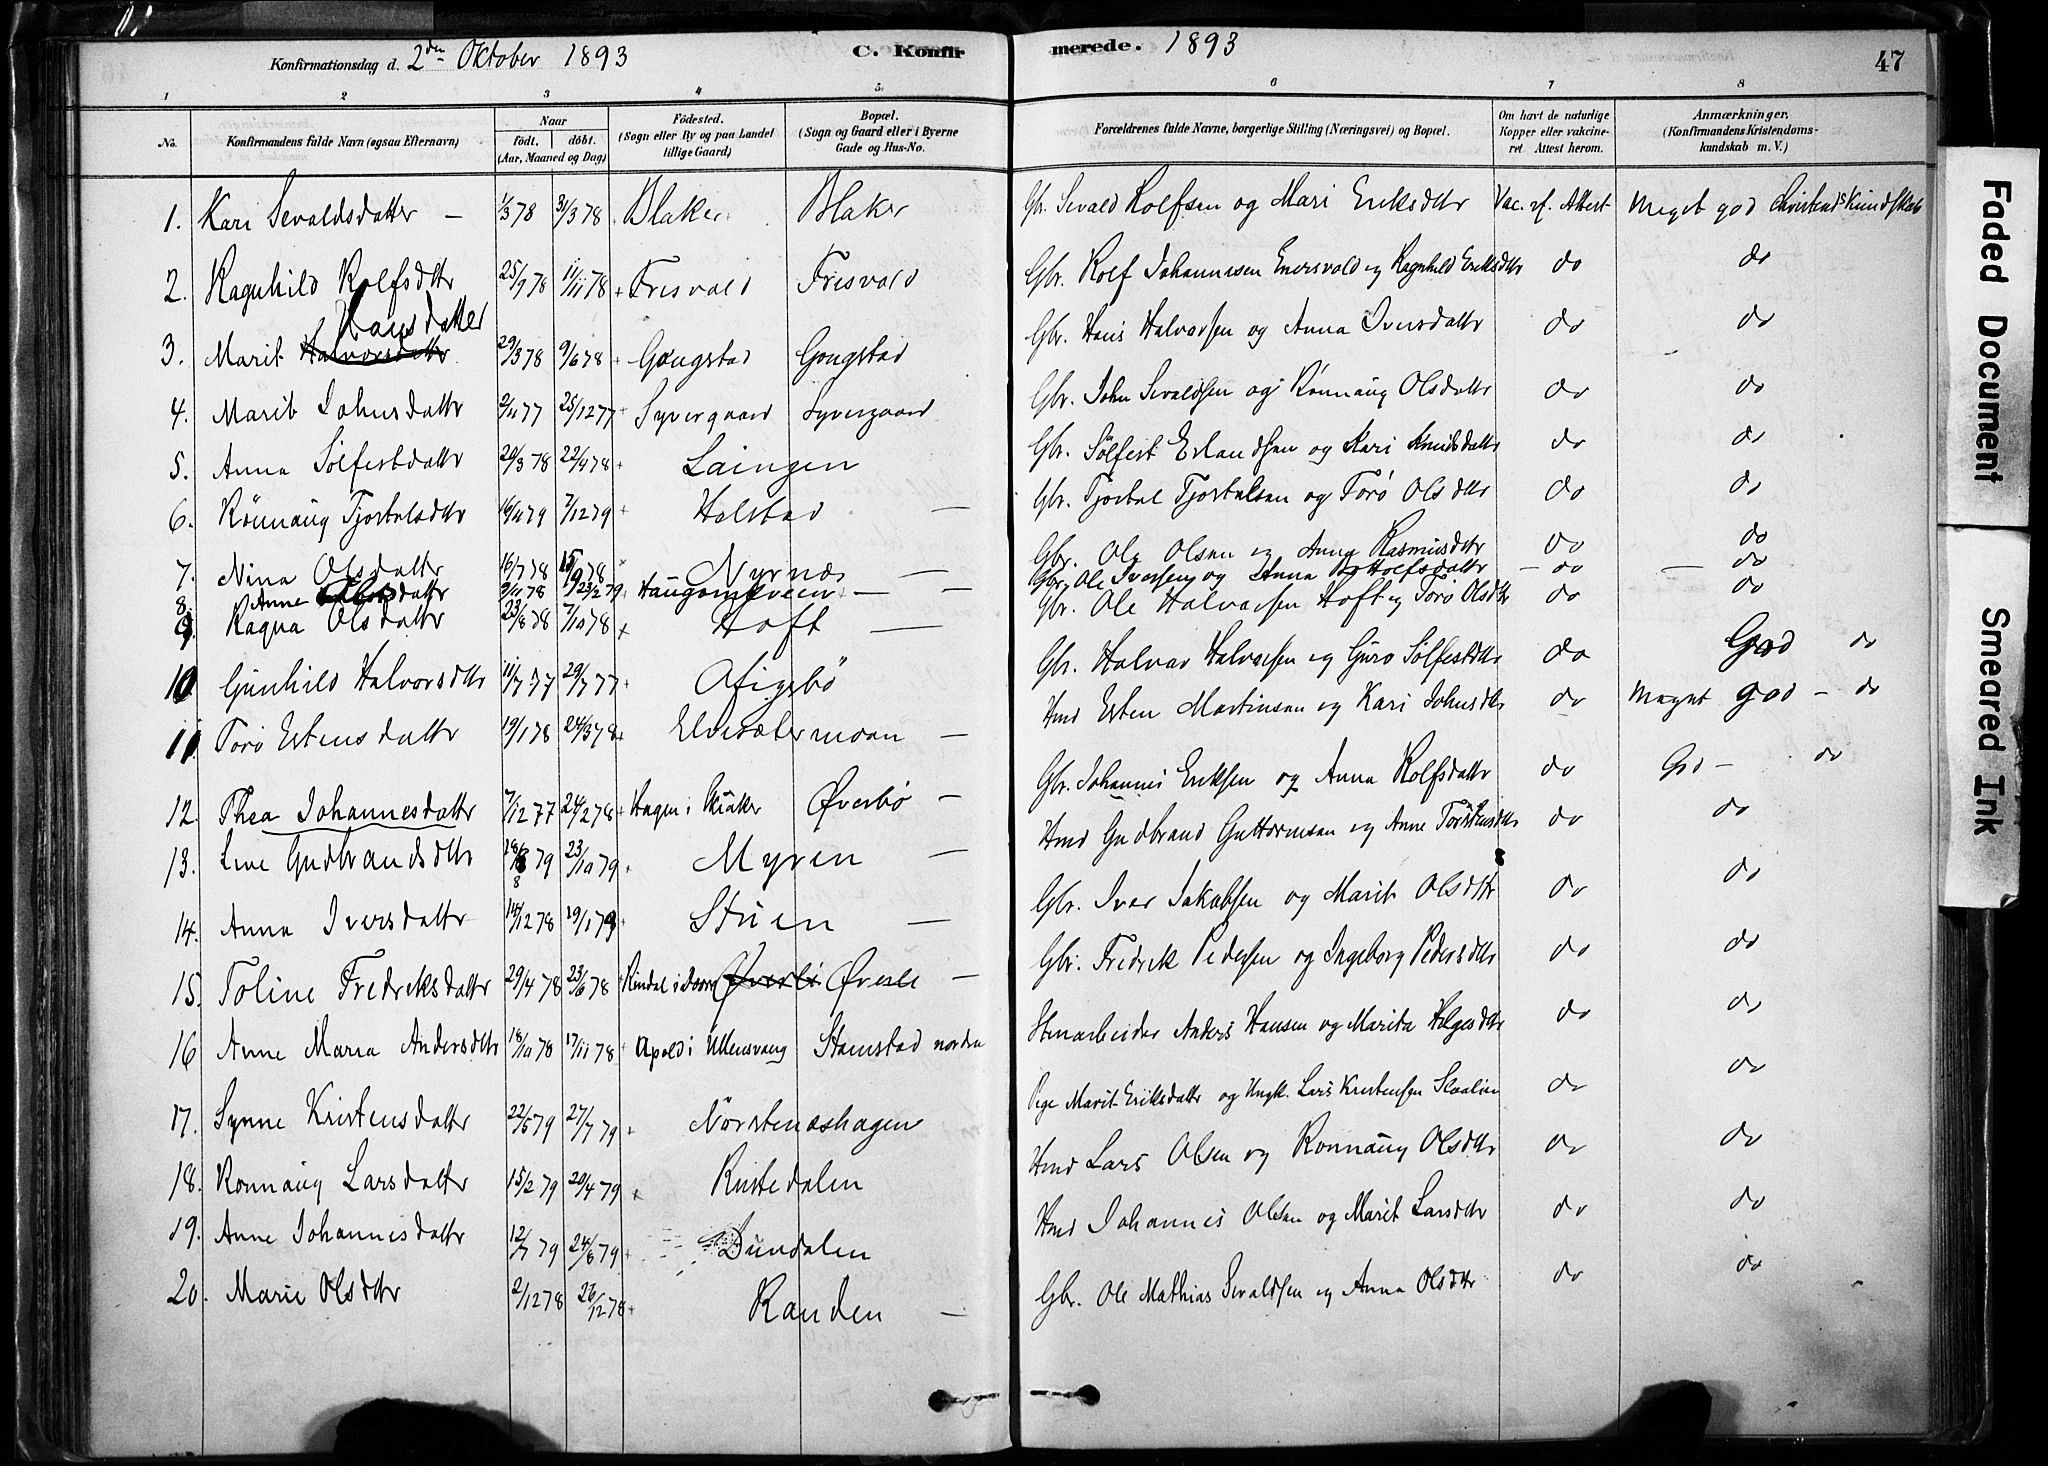 Konfirmationsdag d. 2den Oktober 1893 C. Konfirmerede. 1893 47
1 2 3 4 5. 6 7 8
No. Konfirmandens fulde Navn (ogsaa Efternavn) Naar födt. döbt. (Aar, Maaned og Dag) Födested. (Sogn eller By og paa Landet tillige Gaard) Bopæl. (Sogn og Gaard eller i Byerne Gade og Hus-No. Forældrenes fulde Navne, borgerlige Stilling (Næringsvei) og Bopæl. Om havt de naturlige Kopper eller vakcineret. Attest herom. Anmærkninger. (Konfirmandens Kristendomskundskab m. V.)
1. Kari Sevaldsdatter — 1/3 78 31/3 78 Blaker Blaker Gbr. Sevald Rolfsen og Mari Eriksdtr Vac. if. Attest Meget god Christendskundskab
2. Ragnhild Rolfsdtr 25/9 78 11/11 78 + Frisvold Frisvold Gbr. Rolf Johannesen og Ragnhild Eriksdtr do do
3. Marit Halvorsdatter Hansdatter 29/3 78 9/6 78 + Gongstad Gongstad Gbr. Hans Halvorsen og Anna Iversdattr do do
4. Marit Johnsdattr 2/11 77 25/12 77 + Syvergaard Syvergaard Gbr. John Sevaldsen og Rönnaug Olsdattr do do
5. Anna Sölfestdattr 20/3 78 22/4 78 + Laingen Gbr. Sölfest Erlandsen og Kari Knudsdattr do do
6. Rönnaug Tjostolsdtr 16/11 79 7/12 79 + Holstad — Gbr. Tjostol Tjostolsen og Torö Olsdtr do do
7. Nina Olsdattr 16/7 78 15/9 78 Nyrnæs — Gbr. Ole Olsen og Anna Rasmusdtr do do
8. Anne datter 9/11 78 23/2 79 + — — Gbr. Ole Iversen og Anna Rolfsdattr — do — do
9. Ragna Olsdattr 23/8 78 7/10 78 + Hoft — Gbr. Ole Halvorsen Hoft og Torö Olsdtr do do
10 Gunhild Halvorsdtr 11/7 77 29/7 77 + Afigsbö Gbr. Halvor Halvorsen og Guro Sölfestdtr do God do
11. Torö Estensdattr 19/1 78 24/3 78 + Elvesætermoen — Hmd Esten Martinsen og Kari Johnsdtr do Meget god — do
12. Thea Johannesdattr 7/12 77 24/2 78 + Hagen i Skiaker Øverbö — Gbr. Johannes Eriksen og Anna Rolfsdattr do God — do
13. Live Gudbrandsdtr 18/8 79 23/10 79 + Myren — Hmd Gudbrand Guttormsen og Anne Torstensdtr do do
14. Anna Iversdattr 14/12 78 19/1 79 + Stuen — Gbr. Iver Jakobsen og Marit Olsdtr do do
15. Toline Fredreksdattr 29/4 78 23/6 78 Rindal i Øverli Øverli — Gbr. Fredrek Pedersen og Ingeborg Pedersdtr do do
16 Anne Maria Andersdtr 18/10 78 17/11 78 + Apold i Ullensvang Stamstad nordre Stenarbeider Anders Hansen og Marita Helgesdtr do do
17. Synne Kristensdattr 22/5 79 27/7 79 + Norstenæshagen Pige Marit Eriksdattr og Ungk. Lars Kristensen Slaalien do do
18. Ronnaug Larsdattr 15/2 79 20/4 79 + Rustedalen Hmd Lars Olsen og Ronnaug Olsdtr do do
19. Anne Johannesdattr 12/7 79 24/8 79 + Sundalen Hmd Johannes Olsen og Marit Larsdtr do do
20. Marie Olsdtr 2/12 78 26/12 78 + Randen — Gbr. Ole Mathias Sevaldsen og Anna Olsdtr do do
Faded Document
Smeared Ink